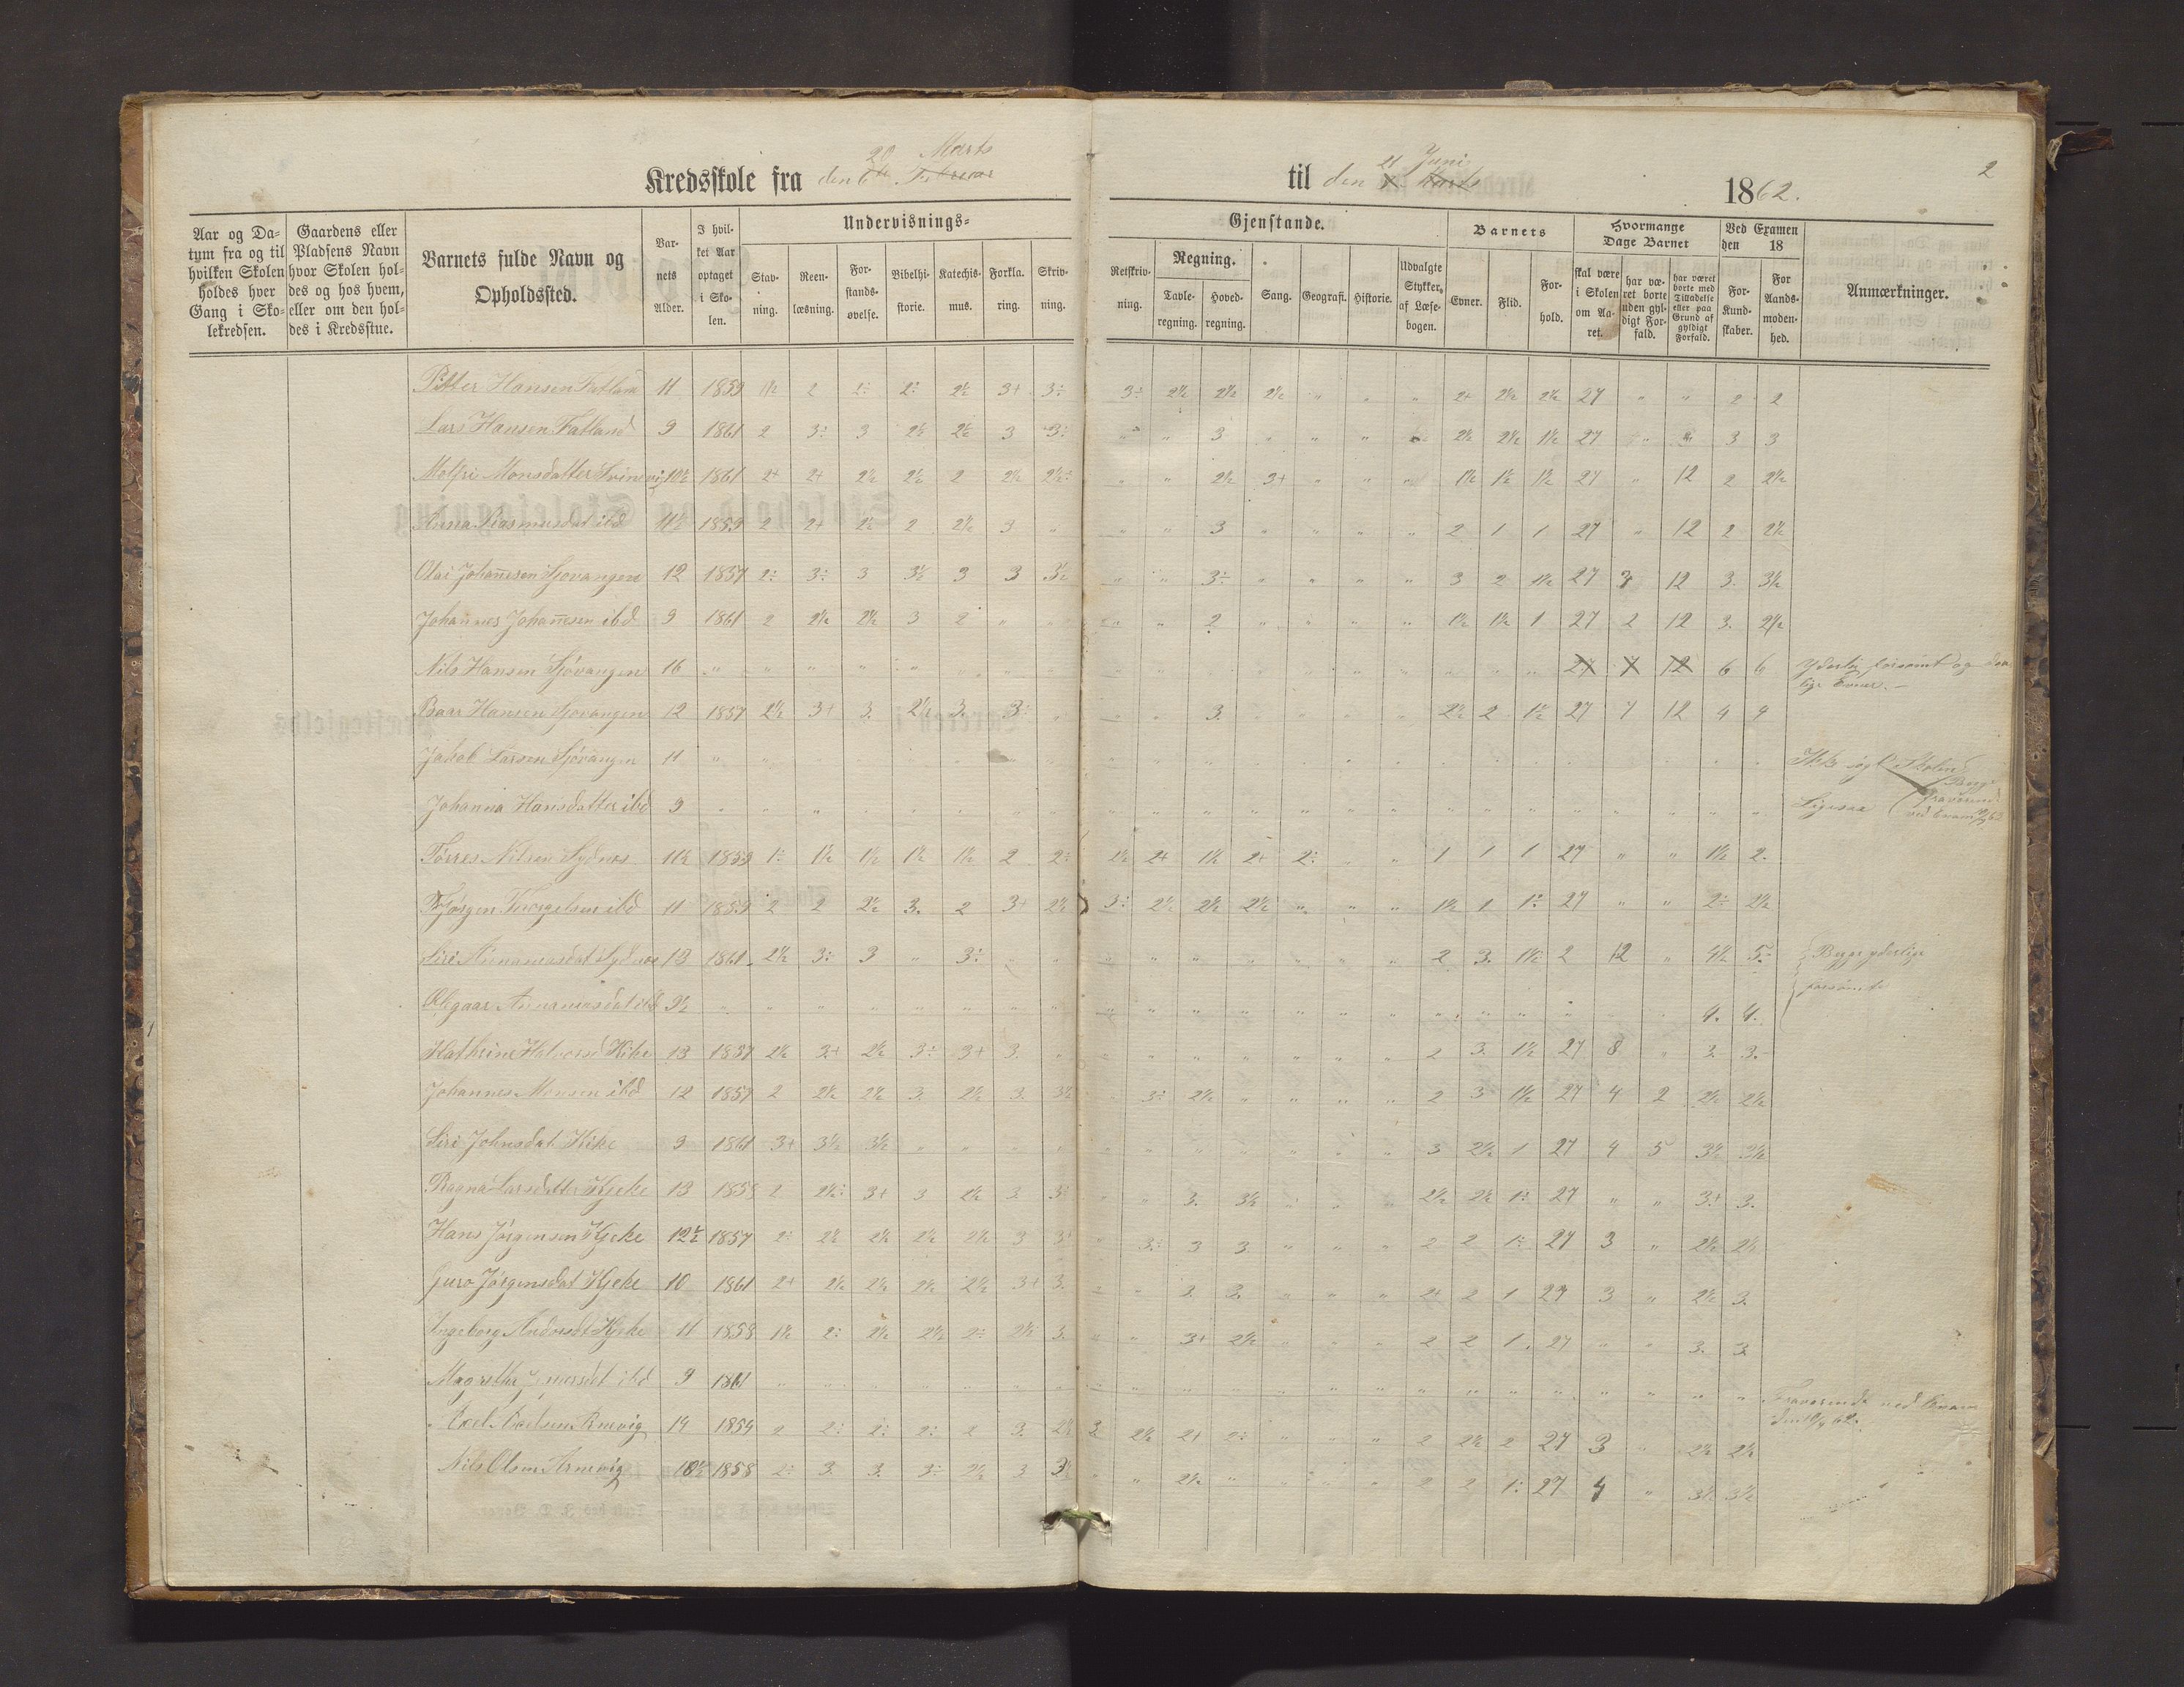 20 Marts
Kredsskole fra den 6te Februar
21 Juni
til den Marts
1862.
2
Aar og Da-
tum fra og til
hvilken Skolen
holdes hver
Gang i Sko-
lekredsen.
Gaardens eller
Pladsens Navn
hvor Skolen hol-
des og hos hvem,
eller om den hol-
des i Kredsstue.
Barnets fulde Navn og
Opholdssted.
Bar-
nets
Alder.
I hvil-
ket Aar
optaget
i Sko-
len.
Undervisnings-
Stav-
ning.
Reen-
læsning.
For-
stands-
øvelse.
Bibelhi-
storie.
Katechis-
mus.
Forkla-
ring.
Skriv-
ning.
Gjenstande.
Retskriv-
ning.
Regning.
Tavle-
regning.
Hoved-
regning.
Sang.
Geografi.
Historie.
Udvalgte
Stykker
af Læse-
bogen.
Barnets
Evner.
Flid.
For-
hold.
Hvormange
Dage Barnet
skal være
i Skolen
om Aa-
ret.
har væ-
ret borte
uden gyl-
digt For-
fald.
har været
borte med
Tilladelse
eller paa
Grund af
gyldigt
Forfald.
Ved Examen
den 18
For-
kund-
skaber.
For
Aands-
moden-
hed.
Anmærkninger.
Petter Hansen Fatland 11 1859 1½ 2 2÷ 2÷ 2½ 3+ 3÷ 3÷ 2½ 2½ 2½ " " " 2+ 2½ 2½ 27 " " 2 2
Lars Hansen Fatland 9 1861 2 3÷ 3 2½ 2½ 3 3÷ " " 3 " " " 2½ 2½ 1½ 27 " " 3 3
Monsdatter 10½ 1861 2+ 2+ 2½ 2½ 2 2½ 2½÷ " " 2½ 3+ " " " 1½ 1½ 1½ 27 " 12 2 2½
Anna Rasmusdat ibd 11½ 1859 2 2+ 2½ 2 2½ 3 " " " 3 " " " " 2 1 1 27 " 12 2 2½
Olai Johannesen Sjovangen 12 1857 2÷ 3÷ 3 3½ 3 3 3½ " " 3÷ " " " " 3 2 1½ 27 7 12 3. 3½
Johannes Johannesen ibd 9 1861 2 2½ 2½ 3 2 " " " " 2 " " " " 1½ 1½ 1 27 2 12 3. 2½
Nils Hansen Sjövangen 16 " " " " " " " " " " 27 7 12 6 6 Yderlig forsømt og daar-
lige Evner.–
Baar Hansen Sjovangen 12 1857 2½ 3+ 3. 2½ 3. 3÷ " " " 3. " " " " 2½ 2 1½ 27 7 12 4 4
Jakob Larsen Sjövangen 11 " " " Ikke søgt Skolen
Johanna Hansdatter ibd 9 " " " Ligesaa Begge
fraværende
ved Exam
Tørres Nilsen Sydnes 11½ 1859 1÷ 1½ 1½ 1½ 1½ 2 2÷ 2½ 2+ 1½ 2+ 2÷ " " 1 1 1 27 " " 1½ 2.
Torgelsen ibd 11 1859 2 2 2½ 3. 2 3+ 2½ 3÷ 2½ 2½ 2½ " " " 1½ 1 1÷ 27 " " 2÷ 2½
Siri Sydnes 13 1861 2½ 3÷ 3 " 3÷ " " " " " " " " " 2 3. 1½ 2 12 " 4½ 5÷ Begge yderlige
forsømte
ibd 9½ " " " " 4. 4.
Kathrine Halvorsd Kike 13 1857 2½ 3+ 2½ 3÷ 3+ 3. " " " " " " " " 2 3. 1½ 27 8 " 3. 3.–
Johannes Monsen ibd 12 1859 2 2½ 2½ 3. 2½ 3. 3½ " 3÷ 2½ " " " " 2 3 1½ 27 4 2 2½ 2½
Siri Johnsdat Kike 9 1861 3+ 3½ 3½ " " " " " " " " " " " 3 2½ 1 27 4 5 3½ 3½
Ragna Larsdatter Kjeke 13 1858 2 2½÷ 3+ 3 2½ 3. 3÷ " " 3. 3½ " " " 2½ 2½ 1÷ 27 " " 3+ 3.
Hans Jörgensen Kjeke 12½ 1857 2÷ 2½ 2½ 2½ 2½ 3 3÷ " 3÷ 3 3. " " " 2 2 1÷ 27 3 " 2½ 2½
Guro Jörgensdat Kjeke 10 1861 2+ 2½ 2½ 2½ 2½ 3+ 3. " " 3. 3. " " " 2+ 2 1 27 3 " 2½ 3.
Ingeborg Andersdt Kjeke 11 1858 1½ 2÷ 2½ 2½ 2÷ 2½ 3. " " 3+ 2½ " " " 2 2 1. 27 " " 3. 3.
Magrethe ibd 9 1861 " " " Fraværende ved Exam
62.
Axel Axelsen 14 1854 2 2÷ 2÷ 2÷ 2 3. 2½ 3 2½ 2+ 2÷ " " " 2 2½ 2 27 3 " 2½ 2½
Nils Olsen 10½ 1858 2÷ 3. 3. 3÷ 2½ 3 3½ " " 2½ " " " " 2 2 1÷ 27 4 " 3½ 3½